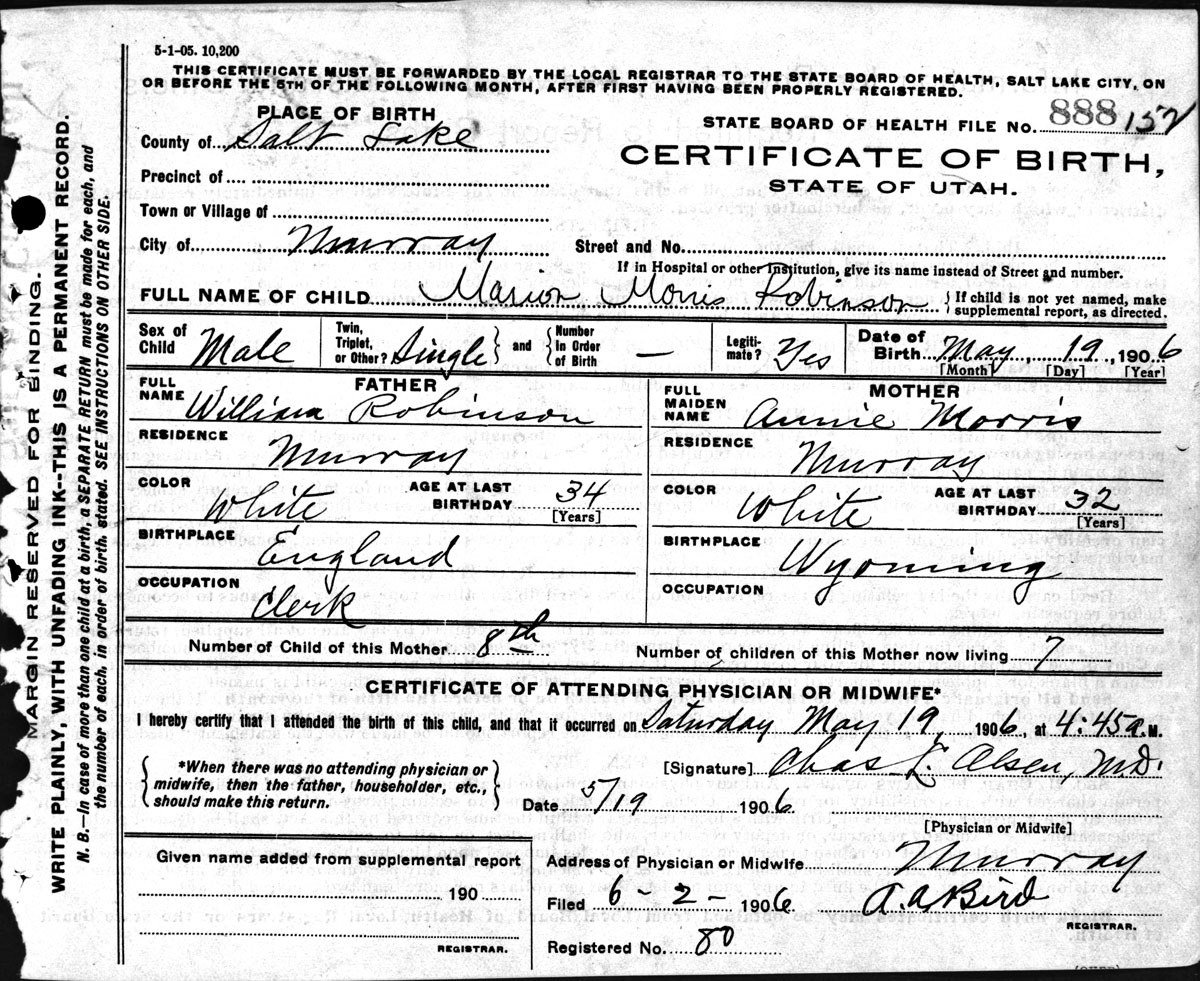 5-1-05. 10,200
THIS CERTIFICATE MUST BE FORWARDED BY THE LOCAL REGISTRAR TO THE STATE BOARD OF HEALTH, SALT LAKE CITY, ON
OR BEFORE THE 5TH OF THE FOLLOWING MONTH, AFTER FIRST HAVING BEEN PROPERLY REGISTERED.
PLACE OF BIRTH
County of Salt Lake
Precinct of
Town or Village of
City of Murray
STATE BOARD OF HEALTH FILE No. 888 157
CERTIFICATE OF BIRTH,
STATE OF UTAH.
Street and No.
If in Hospital or other Institution, give its name instead of Street and number.
FULL NAME OF CHILD Marion Morris Robinson { If child is not yet named, make
supplemental report, as directed.
Sex of Child Male
Twin, Triplet, or Other? Single } and { Number in Order of Birth —
Legitimate? Yes
Date of Birth May, 19, 1906
[Month] [Day] [Year]
FATHER
FULL NAME William Robinson
RESIDENCE Murray
COLOR White AGE AT LAST BIRTHDAY 34
[Years]
BIRTHPLACE England
OCCUPATION Clerk
MOTHER
FULL MAIDEN NAME Annie Morris
RESIDENCE Murray
COLOR White AGE AT LAST BIRTHDAY 32
[Years]
BIRTHPLACE Wyoming
OCCUPATION
Number of Child of this Mother 8th Number of children of this Mother now living 7
CERTIFICATE OF ATTENDING PHYSICIAN OR MIDWIFE*
I hereby certify that I attended the birth of this child, and that it occurred on Saturday May 19, 1906, at 4:45 a. M.
{ *When there was no attending physician or
midwife, then the father, householder, etc.,
should make this return. }
[Signature] Chas L. Olsen, M.D.
Date 5/19 1906
[Physician or Midwife]
Given name added from supplemental report
190
REGISTRAR.
Address of Physician or Midwife Murray
Filed 6-2-1906 A.A. Bird
REGISTRAR.
Registered No. 80
MARGIN RESERVED FOR BINDING.
WRITE PLAINLY, WITH UNFADING INK--THIS IS A PERMANENT RECORD.
N. B.—In case of more than one child at a birth, a SEPARATE RETURN must be made for each, and
the number of each, in order of birth, stated. SEE INSTRUCTIONS ON OTHER SIDE.